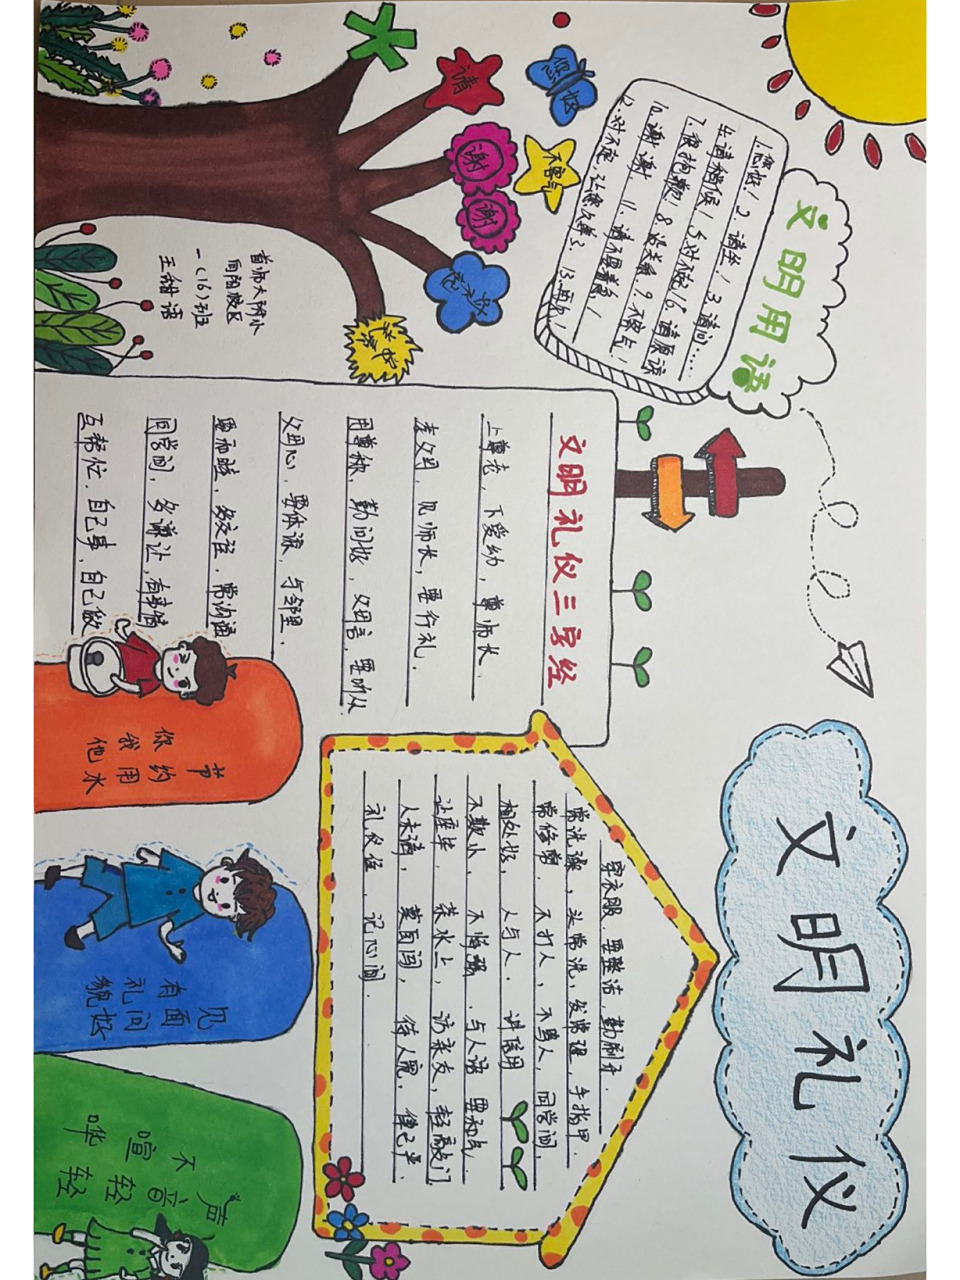 文明礼仪
文明用语
1.您好！2.请坐！3.请问……
4.请稍候！5.对不起！6.请原谅
7.很抱歉！8.没关系！9.不客气！
10.谢谢！11.请不要着急！
12.对不起，让您久等了。13.再见！
您好
请
谢
谢
不客气
对不起
首师大附小
向阳校区
一(16)班
文明礼仪三字经
上尊老，下爱幼，尊师长，
孝父母，见师长，要行礼，
用尊称，勤问好，父母言，要听从
父母心，要体谅，与邻里，
要和睦，多交往，常沟通
同学间，多谦让，有事情
互帮忙，自己事，自己做
穿衣服，要整洁，勤刷牙，
常洗澡，头常洗，发常理，手指甲
常修剪，不打人，不骂人，同学间，
相处好，人与人，讲信用
不欺小，不恃强，与人语，要和气，
让座毕，茶水上，访亲友，轻敲门
人未请，莫直闯，待人宽，律己严，
礼仪佳，记心间。
节约用水
你我他
见面问好
有礼貌
声音轻轻
不喧哗